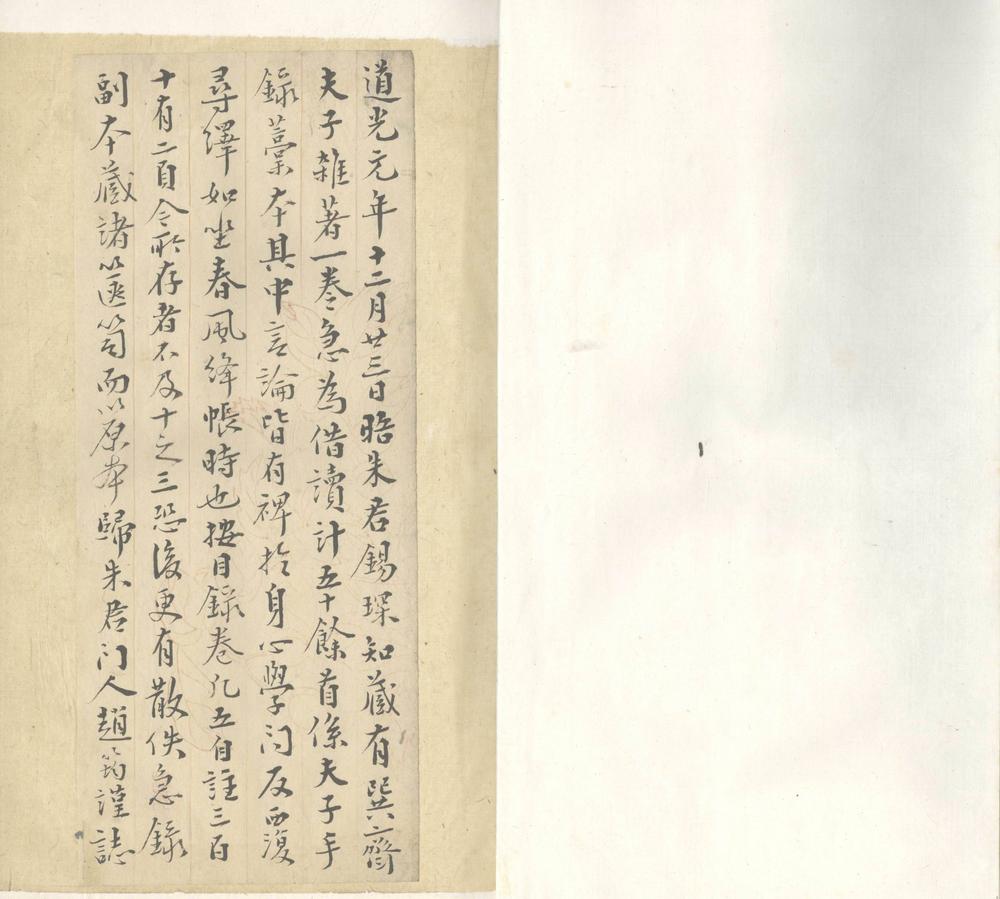 道光元年十二月廿三日晤朱君錫琛知藏有巽齋
夫子雜著一卷急為借讀計五十餘首係夫子手
錄藁本其中言論皆有裨於身心學问反覆
尋繹如坐春風絳帳時也按目錄卷凡五自註三百
十有二頁今所存者不及十之三恐後更有散佚急錄
副本藏諸篋笥而以原本歸朱君门人趙筠謹誌